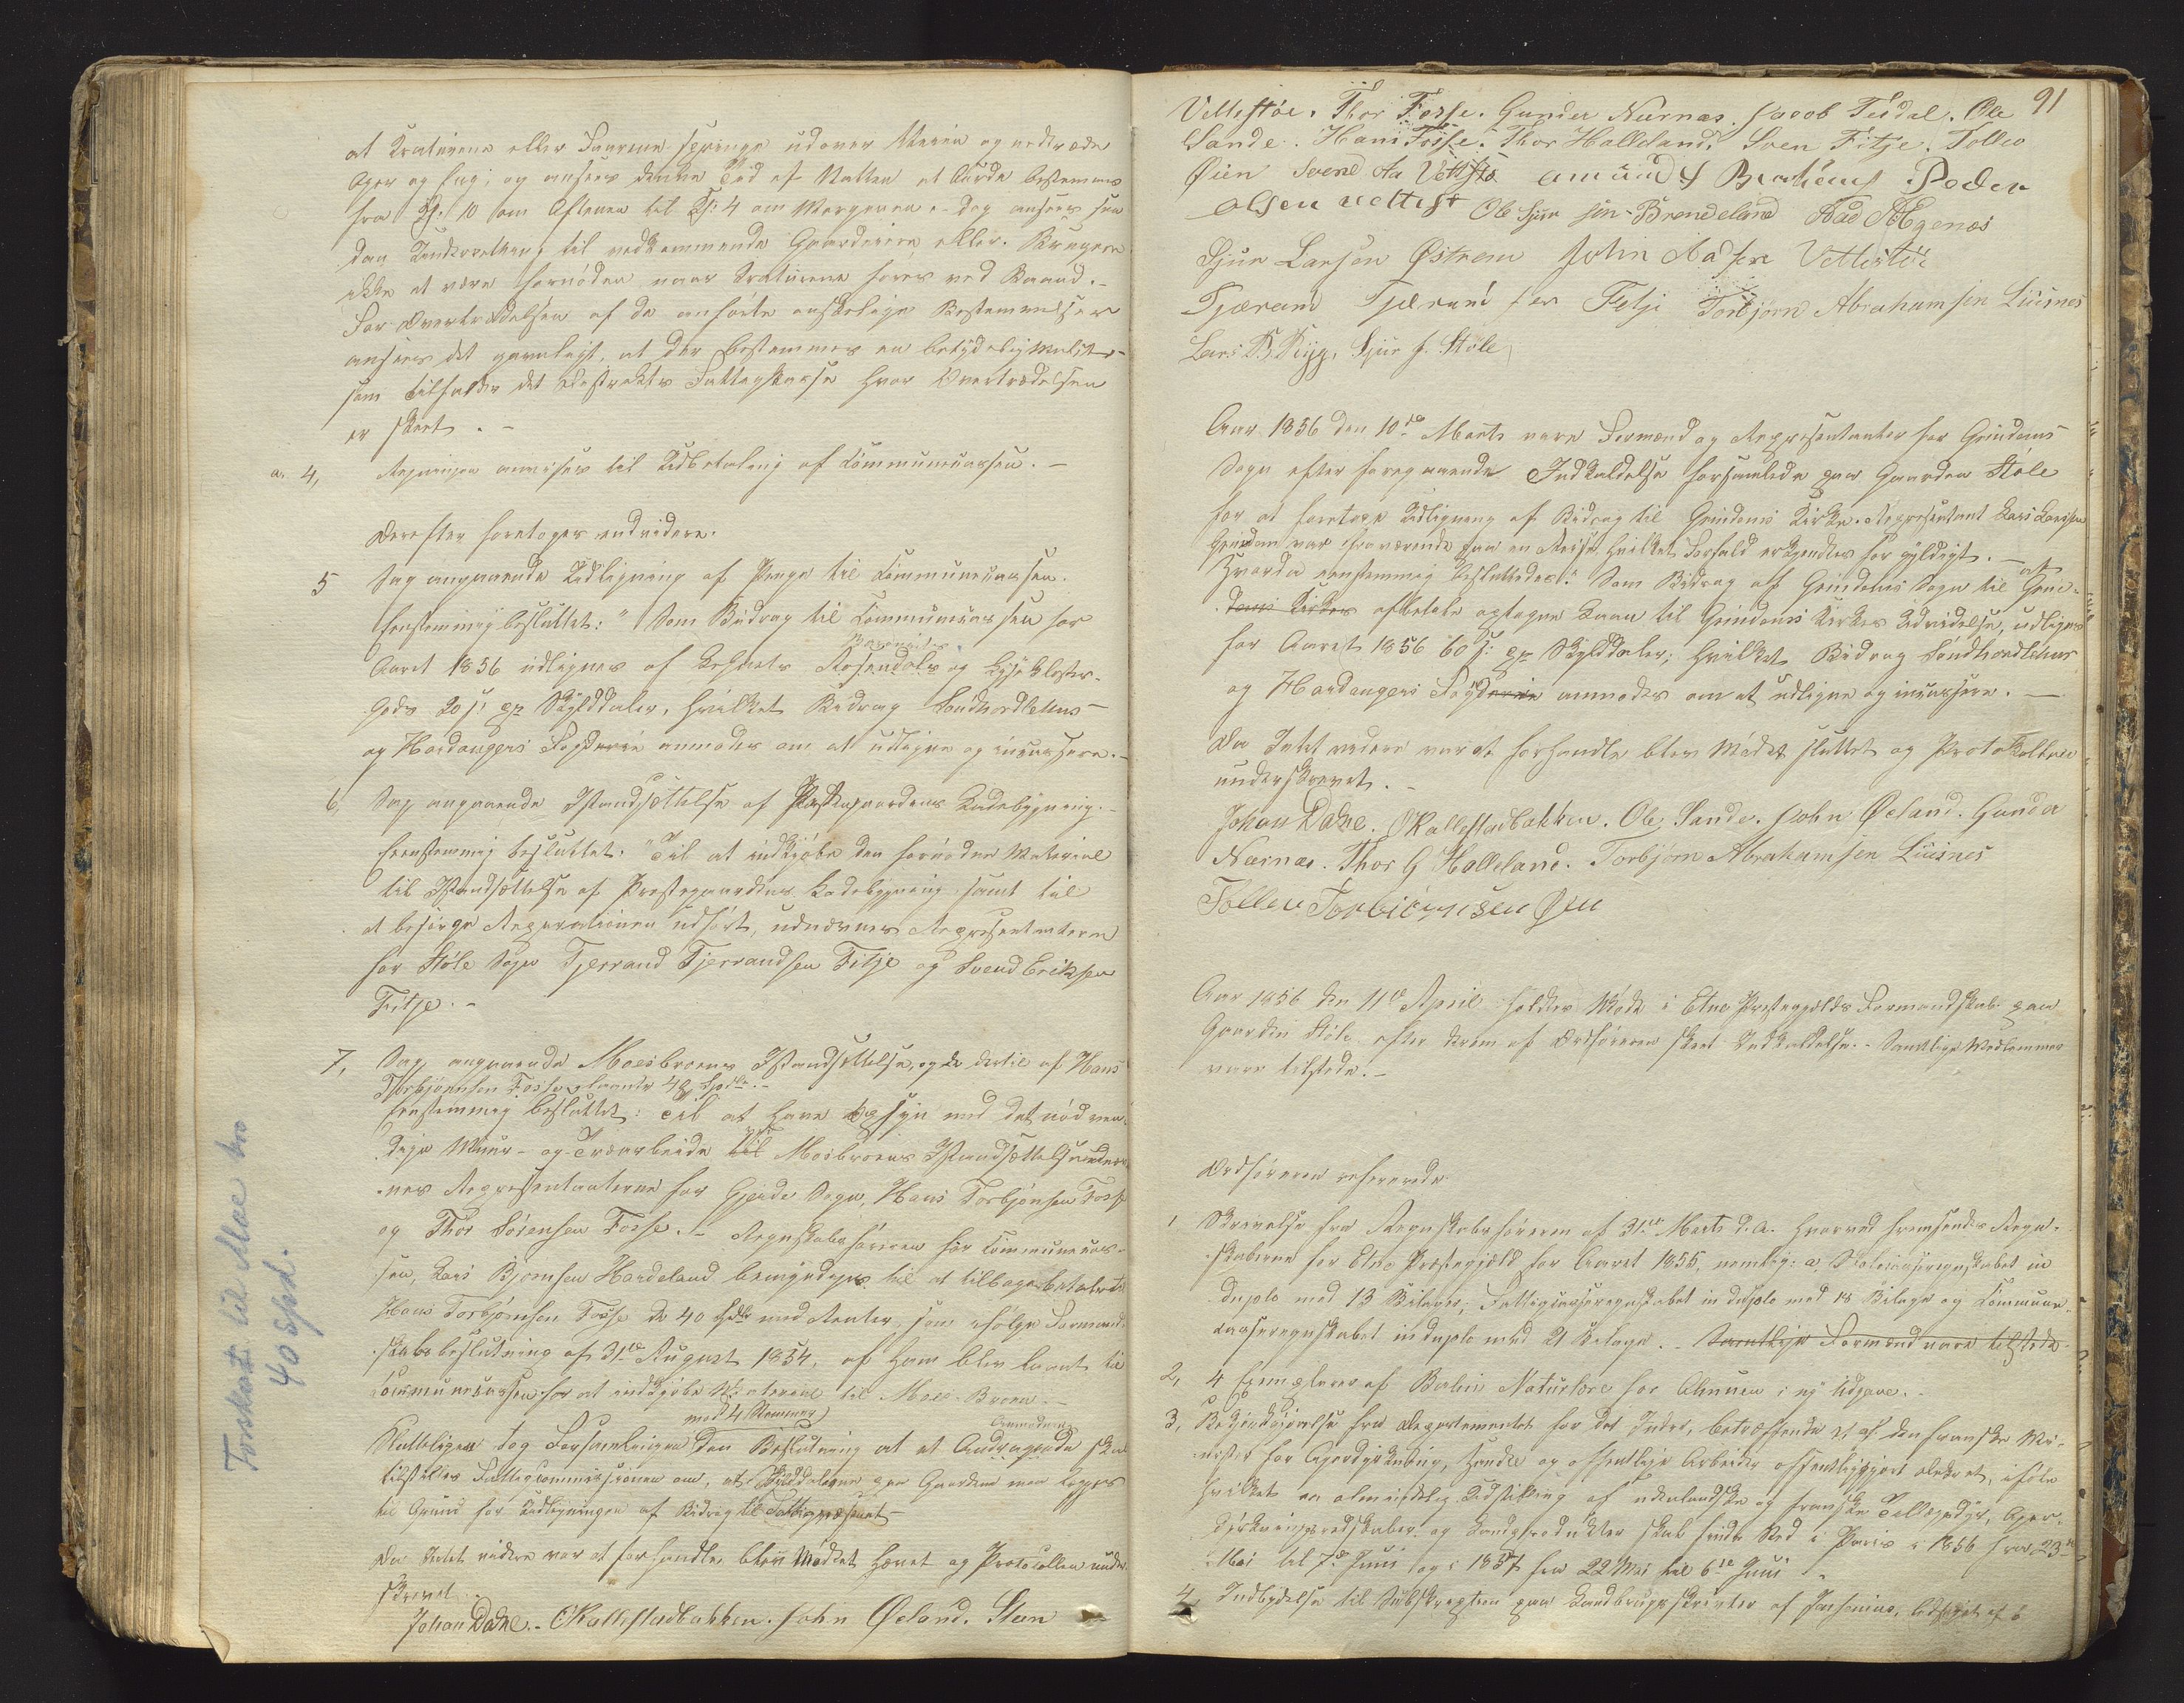 at Kreaturene eller Faarene springe udover Veien og nedtræde
Ager og Eng; og ansees denne Tid af Natten at burde bestemmes
fra Kl. 10 om Aftenen til Kl: 4 om Morgenen - dog ansees saa
dan Underretning til vedkommende Gaardeiere eller Brugere
ikke at være fornøden naar Kreaturene føres ved Baand.-
For Overtrædelsen af de anførte Bestemmelser
ansees det gavnligt, at der bestemmes en betydelig Mulct-
som tilfalder det Distrikts Fattigkasse hvor Overtrædelsen
er skeet.-
a. 4, Regningen anvises til Udbetaling af Communecassen.-
Derefter foretoges endvidere.
5 Sag angaaende Udligning af Penge til Communecassen.
Eenstemmig besluttet: "Som Bidrag til Communecassen for
Baroniets
Aaret 1856 udlignes af Rosendals og Lyse Kloster-
gods 20 s: pr Skylddaler, hvilket Bidrag Søndhordlehns
og Hardangers Fogderie anmodes om at udligne og incassere.-
6, Sag angaaende Istandsættelse af Præstegaardens Ladebygning.-
Eenstemmig besluttet: "Til at indkjøbe den fornødne Material
til Istandsættelse af Præstegaardens Ladebygning samt til
at besørge Reparationen udført, udnævnes Repræsentanterne
for Støle Sogn Tjerrand Tjerrandsen Fitje og Svend Eriksen
Fitje.-
7, Sag angaaende Moesbroens Istandsættelse, og de dertil af Hans
Thorbjørnsen Fosse laante 40 Spdlr.-
Eenstemmig besluttet: Til at have Opsyn med det nødven
dige Muur- og Træarbeide til Moebroens Istandsættelse udnæv
nes Repræsentanterne for Gjerde Sogn, Hans Torbjønsen Fosse
og Thor Sørensen Fosse.- Regnskabsføreren for Communecas-
sen, Lars Bjørnsen Hardeland bemyndiges til at tilbagebetale
Hans Torbjørnsen Fosse de 40 Spdlr med Renter, som ifølge Formand
skabsbeslutning af 31te August 1854, af ham blev laant til
Communecassen for at indkjøbe Material til Moe-Broen.-
med 4 Stemmer
Anmodning
Sluttelig tog Forsamlingen den Beslutning at et Andragende skal
tilstilles Fattigcommissionen om, at Skylddaleren paa Gaardene maa lægges
til Grund for Udligningen af Bidrag til Fattigvæsenet-
Da Intet videre var at forhandle, blev Mødet hævet og Protocollen under
skrevet.
Johan Dahl.- O Kallestadbakken. John Øeland. Sten
Torskat til Moe bro
40 Spd.
91
Vettestøe. Thor Fosse. Gunder Nærnæs. Jacob Tesdal. Ole
Sande. Hans Fosse. Thor Halleland. Sven Fitje. Tollev
Øien Svend Aa Vettestø Peder
Olsen vettest Ole Brendeland
Sjur Larsen Østrem John Aadsen Vettestøe
Tjæran Tjæransen Fetje Torbjørn Abrahamsen Liisnes
Lars B. Rygg, Sjur J. Støle
Aar 1856 den 10de Marts vare Formænd og Repræsentanter for Grindems
Sogn efter foregaaende Indkaldelse forsamlede paa Gaarden Støle
for at foretage Udligning af Bidrag til Grindems Kirke. Repræsentant Lars Larsen
Grindem var fraværende paa en Reise hvilket Forfald erkjendtes for gyldigt.-
Hvorda eenstemmig besluttedes: Som Bidrag af Grindems Sogn til at
dems Kirkes afbetale optagne Laan til Grindems Kirkes Udvidelse, udlignes
for Aaret 1856 60 s: pr Skylddaler; hvilket Bidrag Søndhordlehns
og Hardangers Fogderie anmodes om at udligne og incassere.-
Da Intet videre var at forhandle blev Mødet sluttet og Protokollen
underskrevet.-
Johan Dahl. O Kallestadbakken. Ole Sande. John Øeland. Gunder
Nærnæs. Thor G Halleland. Torbjørn Abrahamsen Liisnes
Tollev Torbiørnsen Øen
Aar 1856 den 11te April holdtes Møde i Etne Præstegjelds Formandskab paa
Gaarden Støle efter derom af Ordføreren skeet Indkaldelse.- Samtlige Medlemmer
vare tilstede.-
Ordføreren refererede
1 Skrivelse fra Regnskabsføreren af 31te Marts d.A. hvorved fremsendes Regn-
skaberne for Etne Præstegjeld for Aaret 1855, nemlig: a, Skolecasseregnskabet in
duplo med 13 Bilager; Fattigcasseregnskabet in duplo med 18 Bilage og Commune-
casseregnskabet in duplo med 21 Bilage.- Samtlige Formænd vare tilstede.
2, 4 Exemplarer af Bulls Naturlære for Almuen i ny Udgave.-
3, Bekjendtgjørelse fra Departementet for det Indre, betræffende et af den franske Mi-
nister for Agerdyrkning, Handel og offentlige Arbeider offentliggjort Dekret, ifølge
hvilket en almindelig Udstilling af udenlandske og franske Tillægsdyr, Ager-
dyrkningsredskaber og Landsprodukter skal finde Sted i Paris i 1856 fra 23de
Mai til 7de Juni og i 1857 fra 22 Mai til 6te Juni.-
4, Indbydelse til Subskription paa Landbrugsskrifter af